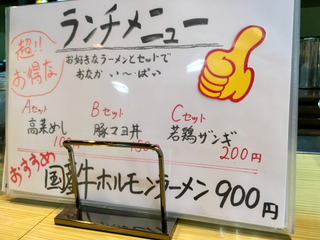 ランチメニュー
超!!
お得な
お好きなラーメンとセットで
おなかい〜ぱい
Aセット
Bセット
Cセット
高菜めし
豚マヨ丼
若鶏ザンギ
200円
おすすめ
国産牛ホルモンラーメン900円